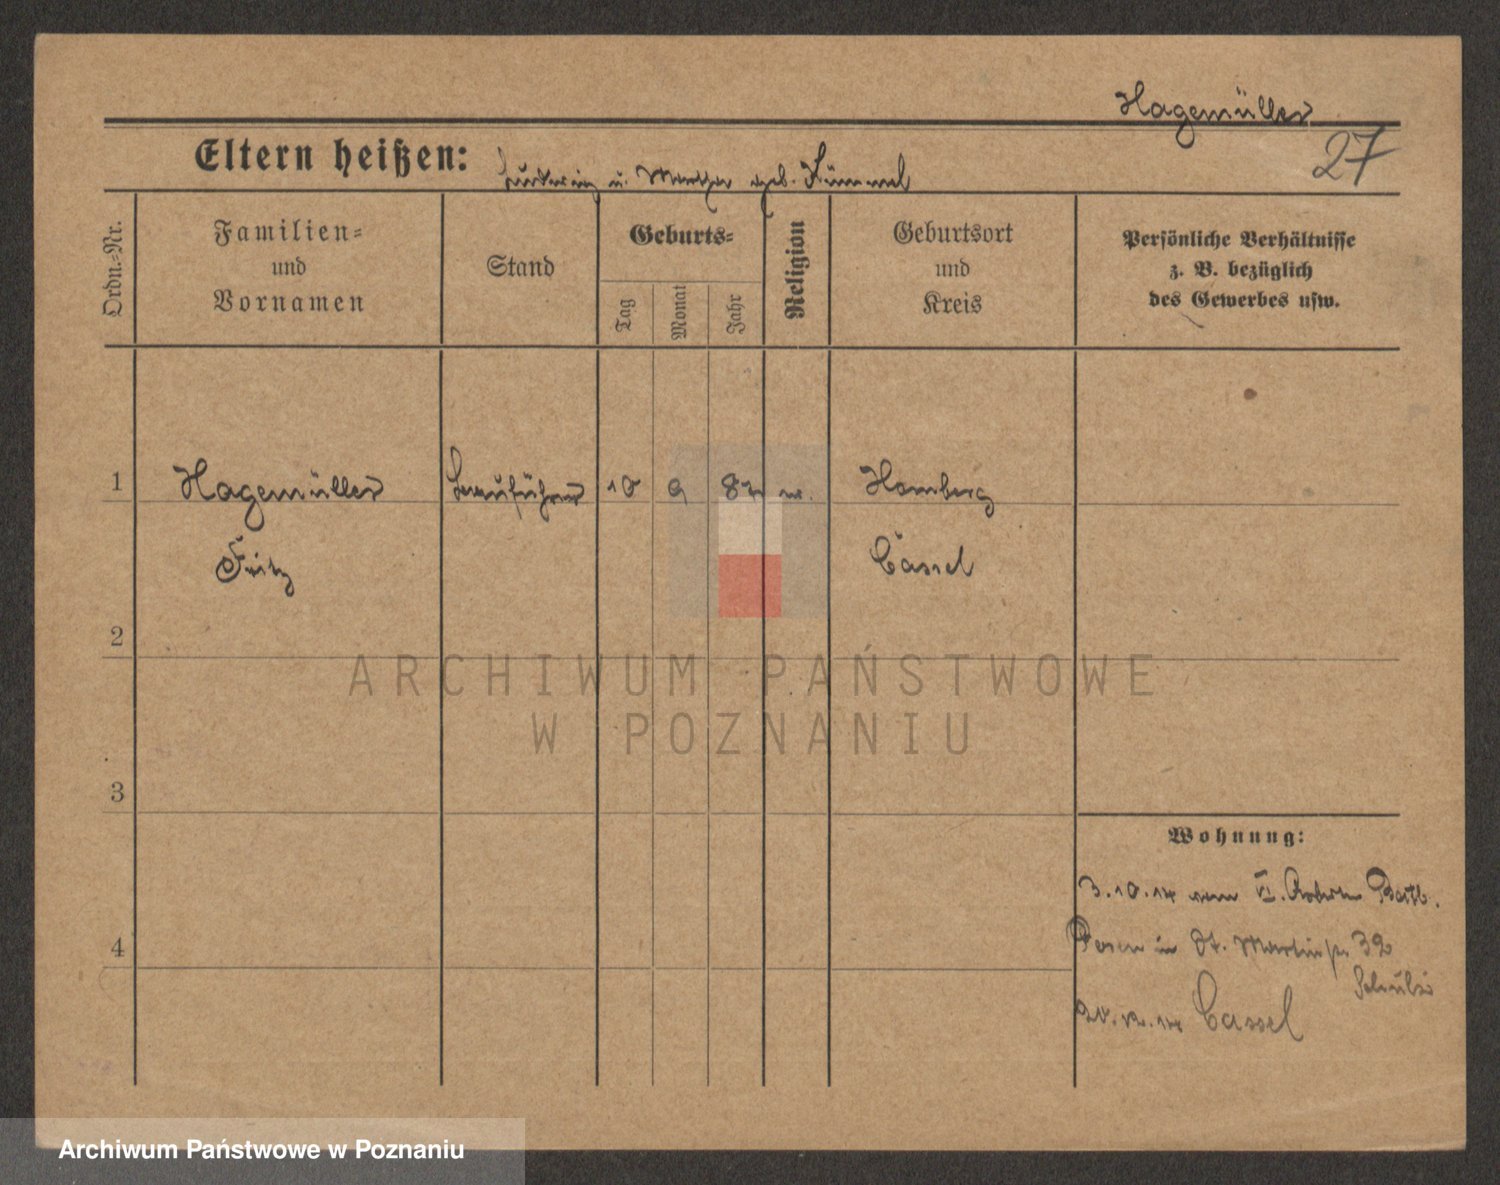 Hagemüller
27
Eltern heißen: Ludwig u. Martha geb. Kümmel
Ordn.-Nr.
Familien-
und
Vornamen
Stand
Geburts-
Tag
Monat
Jahr
Religion
Geburtsort
und
Kreis
Persönliche Verhältnisse
z. B. bezüglich
des Gewerbes usw.
1
Hagemüller
Bauführer
10
9
ev.
Homberg
Fritz
Cassel
2
ARCHIWUM PAŃSTWOWE
W POZNANIU
3
Wohnung:
3.10.14 vom VI. Bartl.
4
Posen in St. Martinstr. 32
Schulz
Cassel
Archiwum Państwowe w Poznaniu